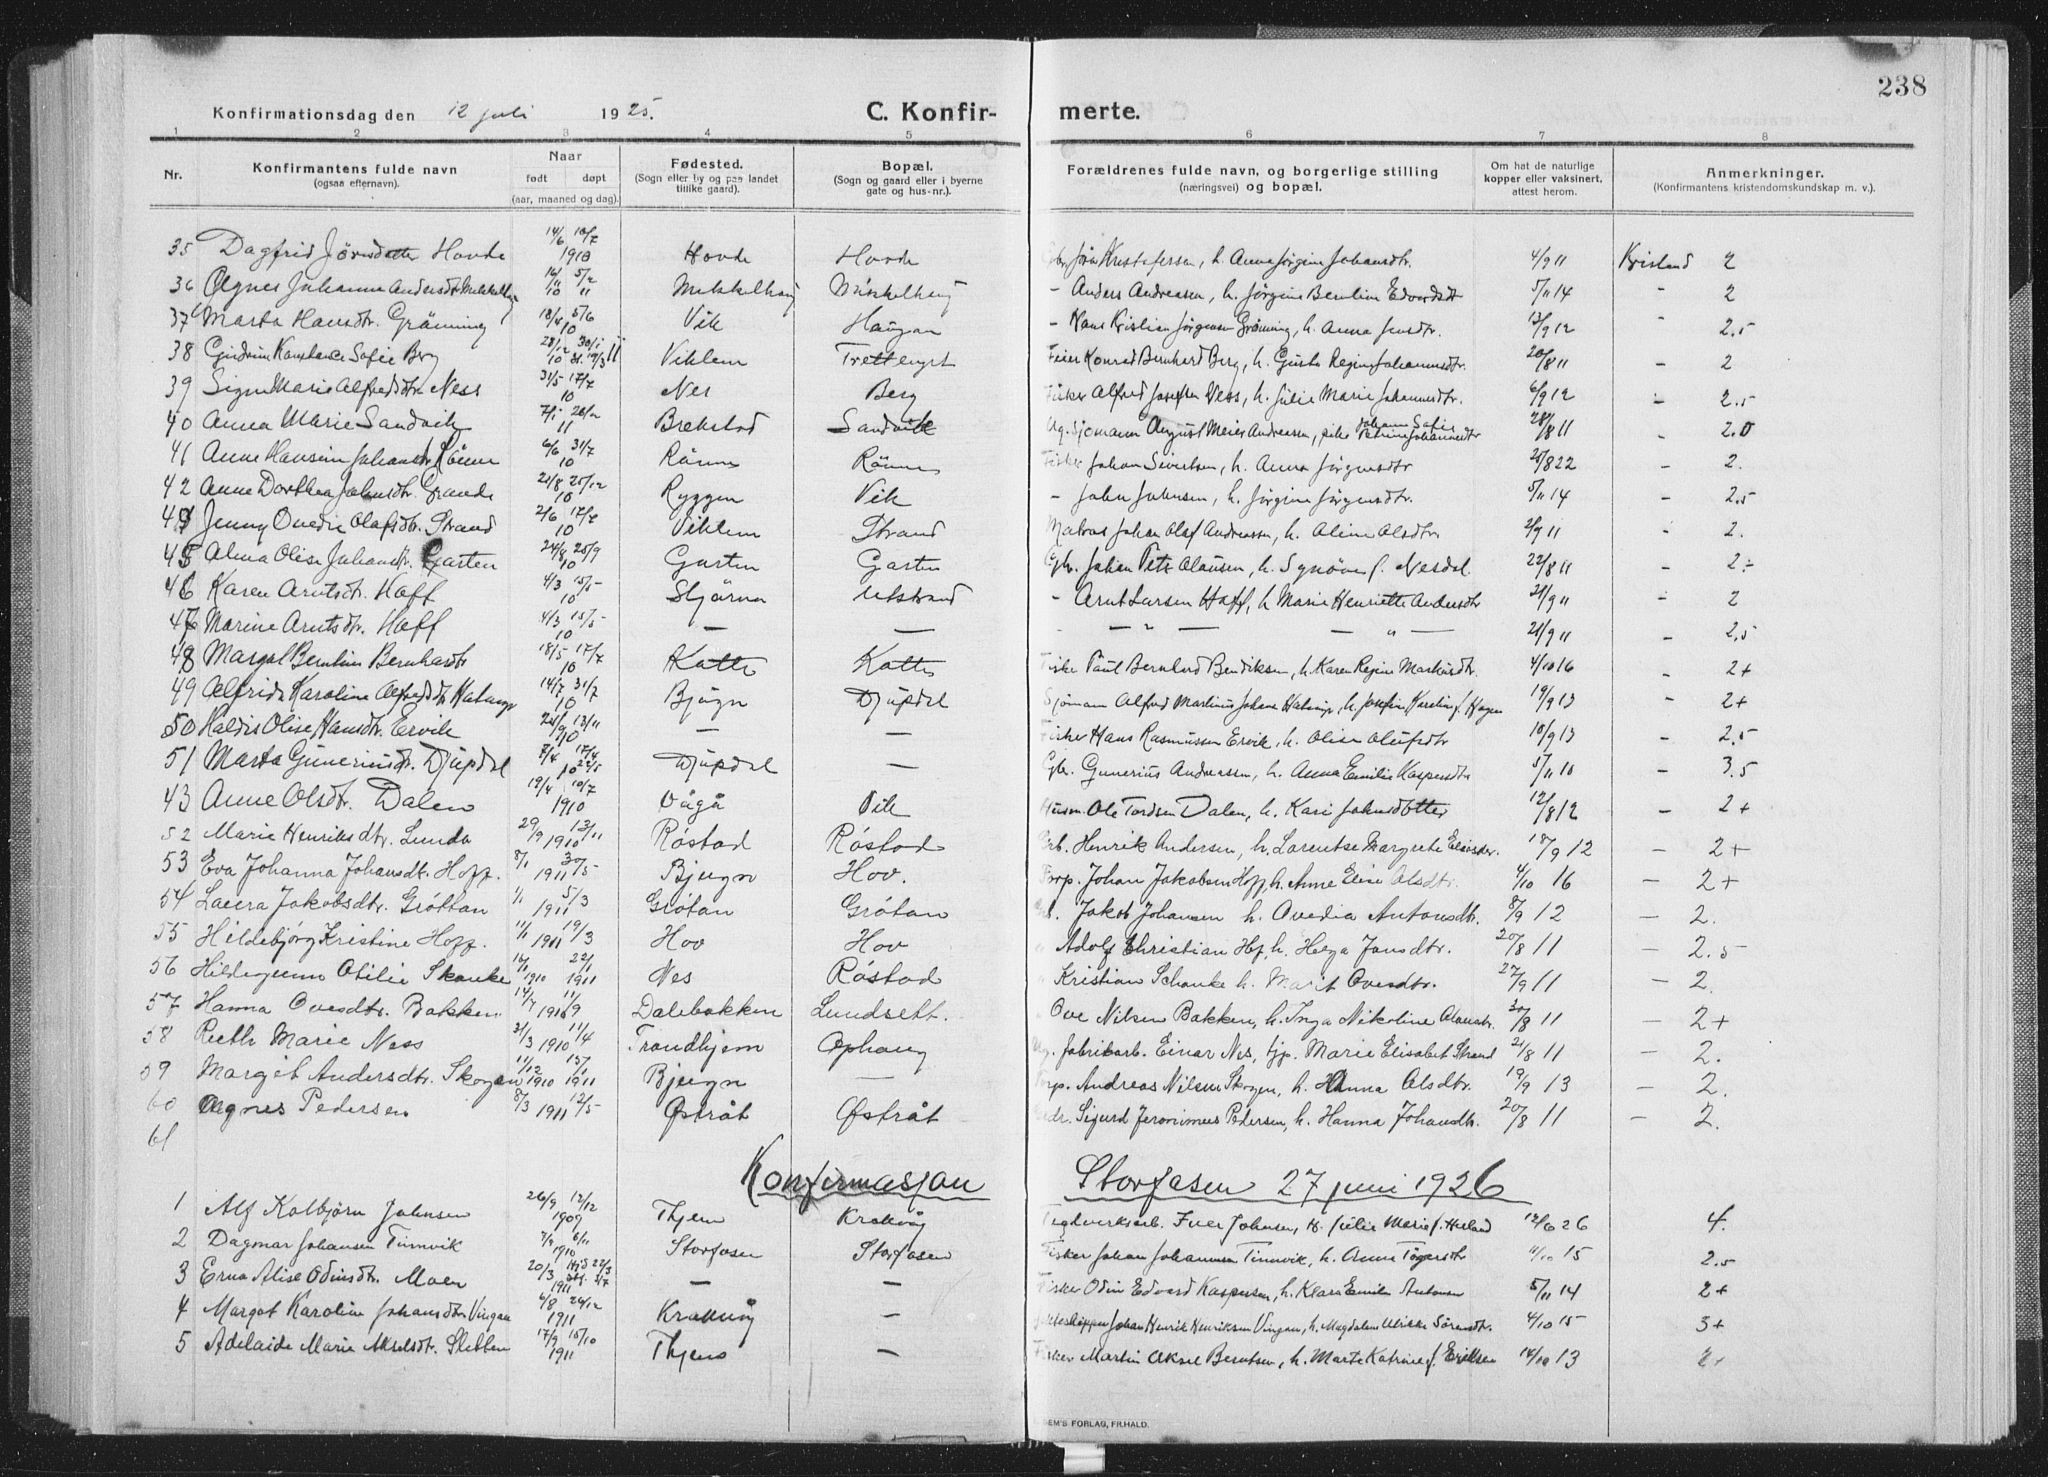 238
Konfirmationsdag den 12 juli 1925. C. Konfir- merte.
1 2 3 4 5 6 7 8
Nr. Konfirmantens fulde navn (ogsaa efternavn). Naar født døpt (aar, maaned og dag). Fødested. (Sogn eller by og paa landet tillike gaard). Bopæl. (Sogn og gaard eller i byerne gate og hus-nr.). Forældrenes fulde navn, og borgerlige stilling (næringsvei) og bopæl. Om hat de naturlige kopper eller vaksinert, attest herom. Anmerkninger. (Konfirmantens kristendomskundskap m. v.).
35 Dagfrid Jörnsdatter Hovde 14/6 10/7 1910 Hovde Hovde Gbr. Jörn Kristofersen, h. Anna Jörgine Johansdtr. 4/9 11 Kristend 2
36 Agnes Johanne Andersdtr. Mekkelhaug 16/11 10 5/2 11 Mekkelhaug Mekkelhaug - Anders Andreasen, h. Jörgine Berntine Edvardsdtr 5/11 14 - 2
37 Marta Hansdtr. Grönning 18/4 5/6 10 Vik Haugan - Hans Kristian Jörgensen Grönning, h. Anna Jensdtr. 13/9 12 - 2.5
38 Gudrun Konstance Sofie Berg 28/12 10 Viklem Feier Konrad Bernhard Berg, h. Gusta Regine Johannesdtr. 20/8 11 - 2
39 Signe Marie Alfredsdtr. Ness 31/5 17/7 10 Nes Berg Fisker Alfred Josefsen Ness, h. Julie Marie Johannesdtr. 6/9 12 - 2.5
40 Anna Marie Sandvik 7/1 26/2 11 Brekstad Sandvik Ug. Sjömann August Meier Andreassen, pike Johanna Sofie Petrine Johannesdtr 28/8 11 - 2.0
41 Anne Hansine Johansdtr. Rönne 6/6 31/7 10 Rönne Rönne Fisker Johan Sivertsen, h. Anna Jörgensdtr 25/8 22 - 2.
42 Anne Dorthea Johnsdtr. Grande 21/8 25/12 10 Ryggen Vik - John Johnsen, h. Jörgine Jörgensdtr. 5/11 14 - 2.5
Jenny Ovedie Olafsdtr. Strand 2/6 17/7 10 Viklem Strand Matros Johan Olaf Andreassen, h. Aline Olsdtr. 2/9 11 - 2.
45 Alma Olise Johansdtr. Garten 24/8 25/9 10 Garten Garten Gbr. Johan Petter Olausen, h. Synöve f. Nesdal 22/8 11 - 2÷
46 Karen Arntsdtr. Hoff 4/3 15/5 10 Stjörna Utstrand - Arnt Larsen Hoff, h. Marie Henriette Andersdtr 21/9 11 - 2
47 Marine Arntsdtr. Hoff 4/3 15/5 10 — — - — " — — " — 21/9 11 - 2.5
48 Margot Berntine Bernhardsdtr 18/5 17/7 10 Kotte Kotte Fisker Paul Bernhard Bendiksen, h. Karen Regine Markusdtr. 4/10 16 - 2+
49 Alfrida Karoline Alfredsdtr. 14/7 31/7 10 Bjugn Djupdal Sjömann Alfred Martinius Johans. h. Josefine Karoline f. Hagen 19/9 13 - 2+
50 Haldis Olise Hansdtr. Ervik 24/9 13/11 10 — — Fisker Hans Rasmussen Ervik, h. Olise Olufsdtr 10/9 13 - 2.5
51 Marta Guneriusdtr. Djupdal 7/4 17/4 10 22/5 Djupdal — Gbr. Gunerius Andreassen, h. Anna Emilie Kaspersdtr 5/11 10 - 3.5
43 Anne Olsdtr. Dalen 19/4 10/7 1910 Vågå Vik Husm. Ole Tordsen Dalen, h. Kari Johnsdotter 12/8 12 - 2+
52 Marie Henriksdtr. Lunda 29/9 13/11 1910 Röstad Röstad Grb. Henrik Andersen, h. Lorentse Margrete Eliasdtr. 18/9 12 - 2+
53 Eva Johanna Johansdtr. Hoff. 8/1 30/5 1911 Bjugn Hov. Forp. Johan Jakobsen Hoff, h. Anne Elise Olsdtr. 4/10 16 - 2+
54 Laura Jakobsdtr. Gröttan 1/1 5/3 1911 Grötan Grötan Jakob Johansen h. Ovedia Antonsdtr. 8/9 12 - 2.
55 Hildebjörg Kristine Hoff. 11/1 19/3 1911 Hov Hov Adolf Christian Hof, h. Helga Jonsdtr. 20/8 11 - 2.5
56 Hildegunn Otilie Skanke 16/11 1910 22/1 1911 Nes Röstad Kristian Schanke h. Marit Ovesdtr. 27/9 11 - 2.
57 Hanna Ovesdtr. Bakken 14/7 11/9 1910 Dalebakken Lundsett. Ove Nilsen Bakken, h. Inga Nikoline Olausdtr. 30/8 11 - 2+
58 Ruth Marie Ness 31/3 11/4 1910 Trondhjem Ophaug Ug. fabrikarb. Einar Nes, tjp. Marie Elisabet Strand 21/8 11 - 2.
59 Margit Andersdtr. Skogen 11/12 1910 15/1 1911 Bjugn — Forp. Andreas Nilsen Skogen, h. Hanna Olsdtr. 19/9 13 - 2.
60 Agnes Pedersen 8/3 12/5 1911 Østråt Østråt Sigurd Jeronimus Pedersen, h. Hanna Johansdtr. 20/8 11 - 2.
61
Konfirmasjon Storfosen 27 juni 1926
1 Alf Kolbjörn Johnsen 26/9 12/12 1909 Thjem Krakvåg Teglverksarb. Iver Johnsen, h. Julie Marie f. Herland 12/6 26 4.
2 Dagmar Johansen Timvik 7/9 6/11 1910 Storfosen Storfosen Fisker Johan Johannesen Timvik, h. Anna Tögersdtr 11/10 15 2.5
3 Erna Alise Odinsdtr. Moen 20/3 1911 — — Fisker Odin Edvard Kaspersen, h. Klara Emilie Antonsen 5/11 14 2+
4 Margot Karoline Johansdtr. Vingan 6/8 26/12 1911 Krakvåg — Johan Henrik Henriksen Vingan, h. Magdalene Ulrikke Sörensdtr. 4/10 15 3+
5 Adelaide Marie Akselsdtr. Sletten 17/9 15/10 1911 Thjems — Fisker Martin Aksel Berntsen, h. Marte Katrine f. Eriksen 14/10 13 2+
SEM'S FORLAG, FR.HALD.